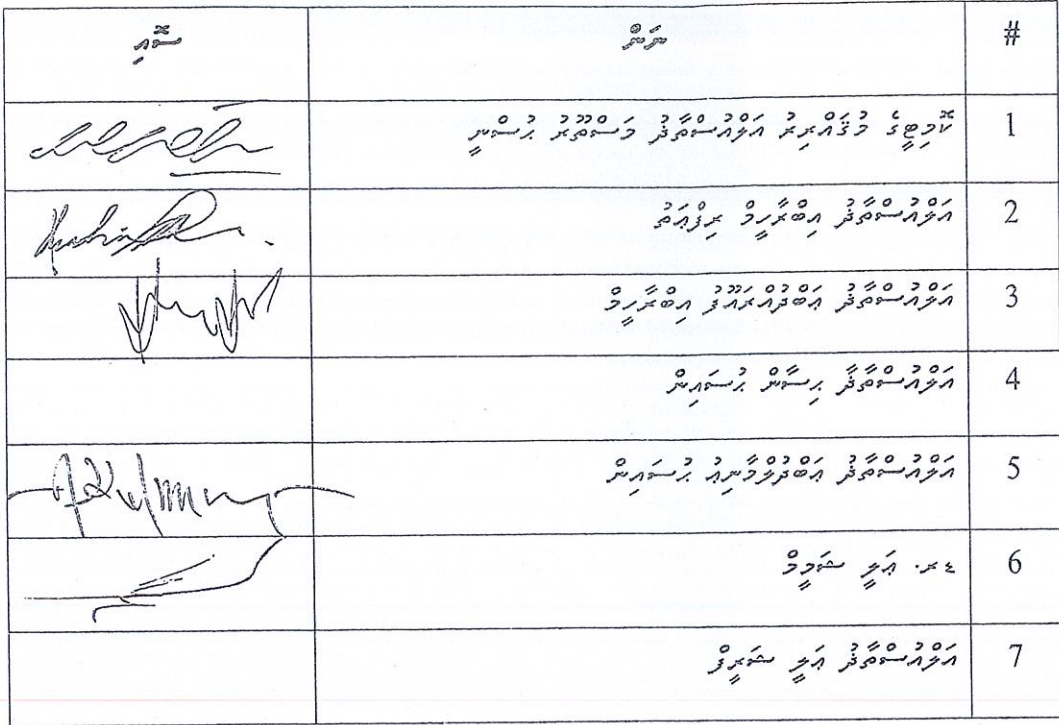 # ނަން ސޮއި
1 ކޮމިޓީގެ މުޤައްރިރު އަލްއުސްތާޛު މަސްތޫރު ޙުސްނީ
2 އަލްއުސްތާޛު އިބްރާހީމް ރިފްޢަތު
3 އަލްއުސްތާޛު ޢަބްދުއްރައޫފު އިބްރާހީމް
4 އަލްއުސްތާޛާ ޙިސާން ޙުސައިން
5 އަލްއުސްތާޛު ޢަބްދުލްމާނިޢު ޙުސައިން
6 ޑރ. ޢަލީ ޝަމީމް
7 އަލްއުސްތާޛު ޢަލީ ޝަރީފް